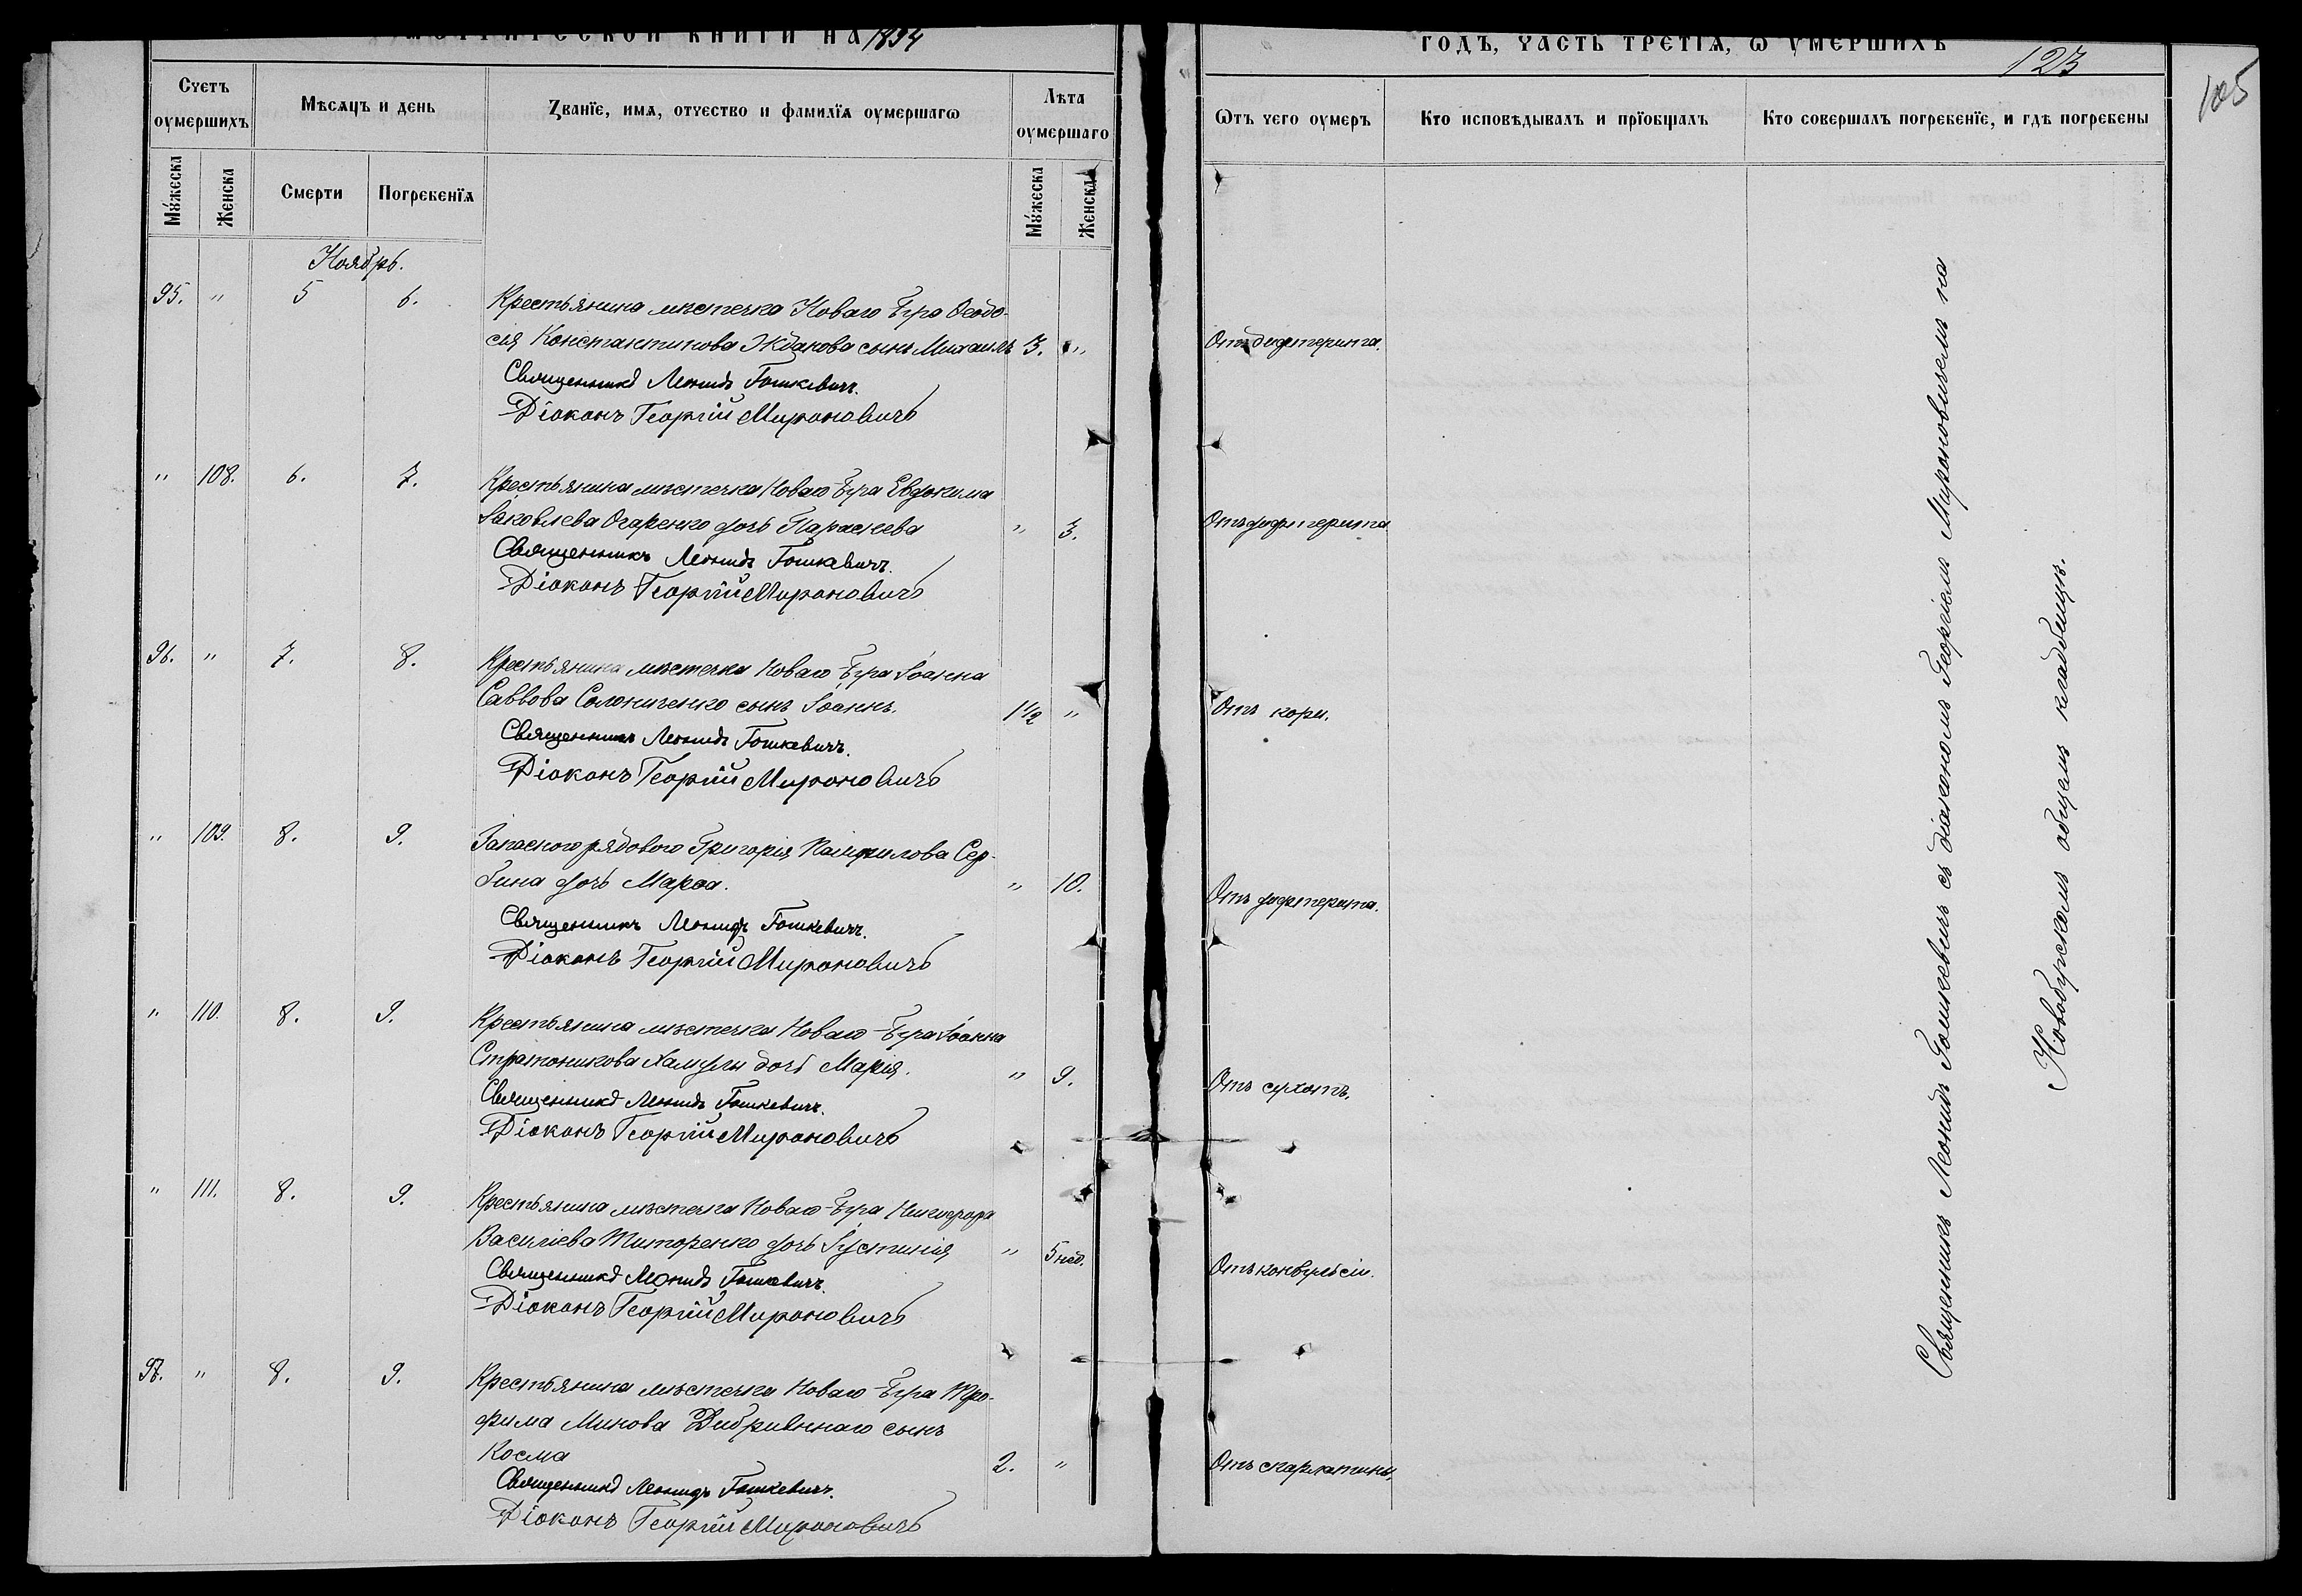 МЕТРИЧЕСКОЙ КНИГИ НА 1894
ГОДЪ, ЧАСТЬ ТРЕТІѦ, Ѡ УМЕРШИХЪ
123
105
Счетъ оумершихъ
Мѣсѧцъ и день
Званїе, имѧ, отчество и фамилїѧ оумершагѡ
Лѣта оумершаго
Ѿтъ чего оумеръ
Кто исповѣдывалъ и прїобщалъ
Кто совершалъ погребенїе, и гдѣ погребены
Мꙋжеска
Женска
Смерти
Погребенїѧ
Мꙋжеска
Женска
Ноябрь.
95. " 5 6.
Крестьянина мѣстечка Новаго Буга Ѳеодо-
сія Константинова Ждакова сынъ Михаилъ 3. "
Отъ дифтерита.
Священникъ Леонидъ Гошкевичъ.
Діаконъ Георгій Мироновичъ
" 108. 6. 7.
Крестьянина мѣстечка Новаго Буга Евдокима
Іаковлева Огаренко дочь Параскева " 3.
Отъ дифтерита
Священникъ Леонидъ Гошкевичъ.
Діаконъ Георгій Мироновичъ
96. " 7. 8.
Крестьянина мѣстечка Новаго Буга Іоанна
Саввова Солониченко сынъ Іоаннъ. 1 1/2 "
Отъ кори.
Священникъ Леонидъ Гошкевичъ.
Діаконъ Георгій Мироновичъ
" 109. 8. 9.
Запасного рядового Григорія Памфилова Сер-
бина дочь Марѳа. " 10.
Отъ дифтерита.
Священникъ Леонидъ Гошкевичъ.
Діаконъ Георгій Мироновичъ
" 110. 8. 9.
Крестьянина мѣстечка Новаго Буга Іоанна
Стратоникова дочь Марія. " 9.
Отъ сухотъ.
Священникъ Леонидъ Гошкевичъ.
Діаконъ Георгій Мироновичъ
" 111. 8. 9.
Крестьянина мѣстечка Новаго Буга Никифора
Василіева Титоренко дочь Іустинія " 5 нед.
Отъ конвульсіи.
Священникъ Леонидъ Гошкевичъ.
Діаконъ Георгій Мироновичъ
97. " 8. 9.
Крестьянина мѣстечка Новаго Буга Тро-
фима Минова Дибривнаго сынъ
Косма 2. "
Отъ скарлатины.
Священникъ Леонидъ Гошкевичъ.
Діаконъ Георгій Мироновичъ
Священникъ Леонидъ Гошкевичъ съ діакономъ Георгіемъ Мироновичемъ на
Новобугскомъ общемъ кладбищѣ.